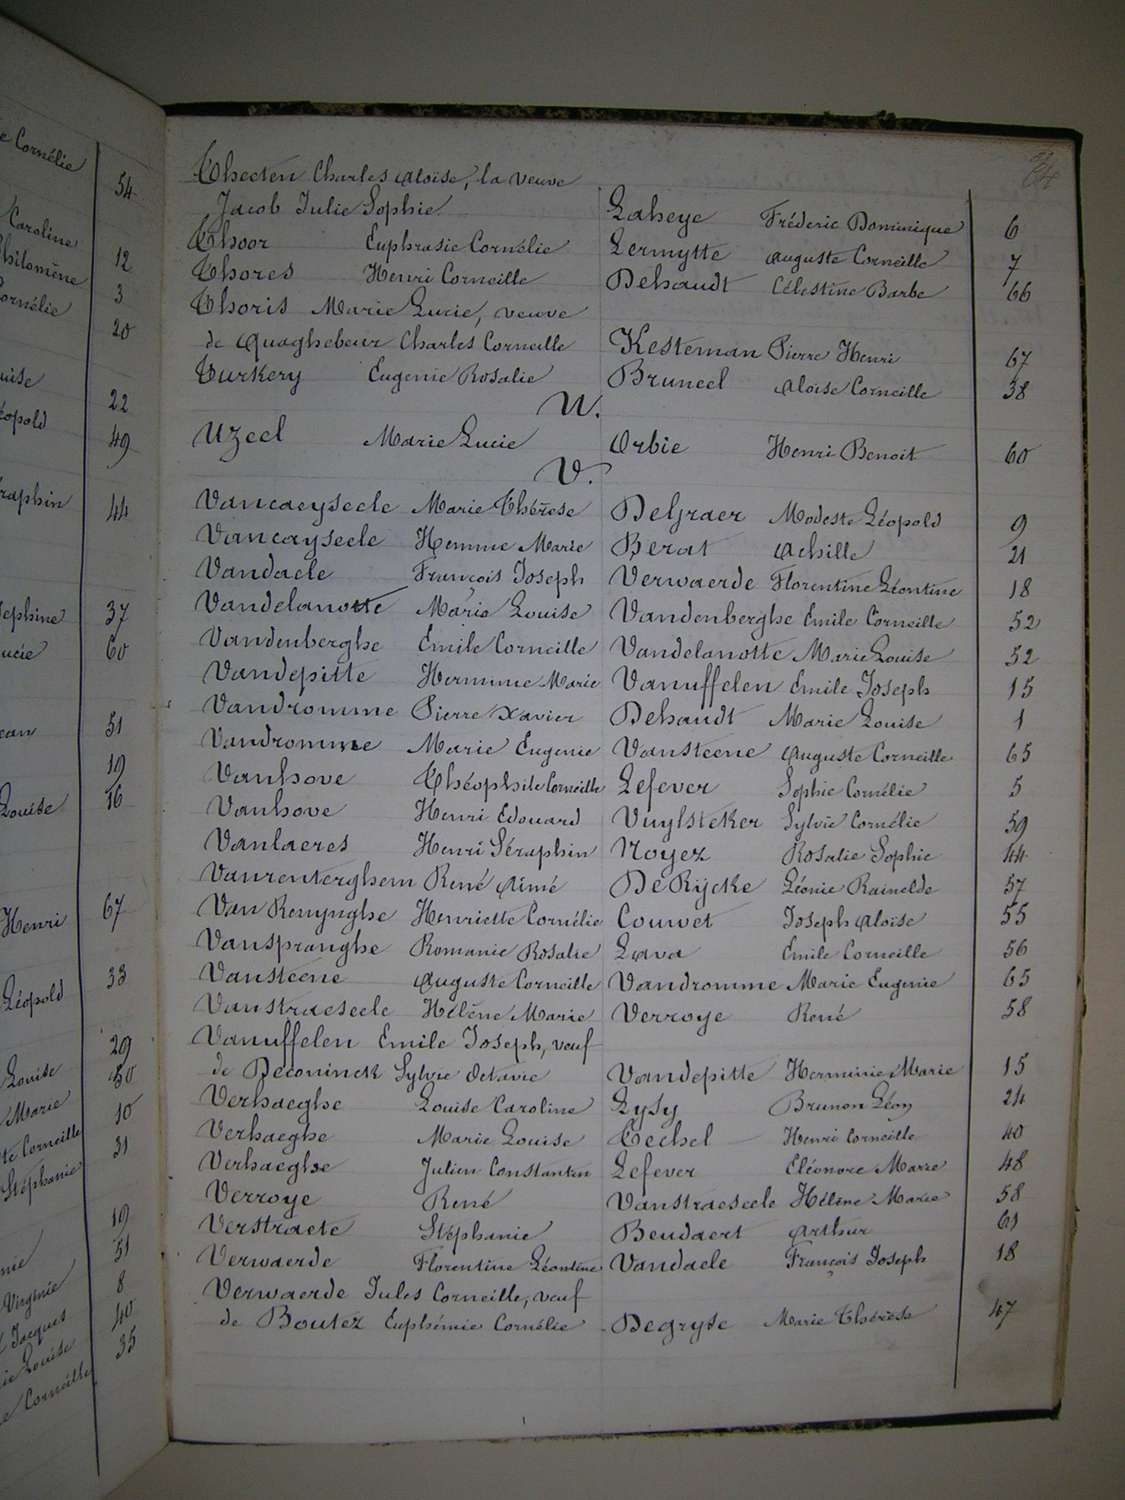 Cornélie 54
Caroline
Philomène 12
Cornélie 3
20
22
Léopold
49
Séraphin 44
Josephine 37
Lucie 60
51
19
Louise 16
Henri 67
33
Léopold
29
Louise 50
Marie 10
Corneille 31
Stéphanie
19
51
Virginie 8
Jacques 40
Louise 35
Corneille
64
Thecten Charles Aloïse, la veuve
Jacob Julie Sophie Laheye Fréderic Dominique 6
Thoor Euphrasie Cornélie Lermytte Auguste Corneille 7
Thores Henri Corneille Dehaudt Célestine Barbe 66
Thoris Marie Lucie, veuve
de Quaghebeur Charles Corneille Kesteman Pierre Henri 67
Turkery Eugenie Rosalie Bruneel Aloïse Corneille 38
U.
Uzeel Marie Lucie Orbie Henri Benoit 60
V.
Vancaeyseele Marie Thérèse DeGraer Modeste Léopold 9
Vancayseele Hemme Marie Berat Achille 21
Vandaele François Joseph Verwaerde Florentine Léontine 18
Vandelanotte Marie Louise Vandenberghe Emile Corneille 52
Vandenberghe Emile Corneille Vandelanotte Marie Louise 52
Vandepitte Hermine Marie Vanuffelen Emile Joseph 15
Vandromme Pierre Xavier Dehaudt Marie Louise 1
Vandromme Marie Eugenie Vansteene Auguste Corneille 65
Vanhove Théophile Corneille Lefever Sophie Cornélie 5
Vanhove Henri Edouard Vuylsteker Sylvie Cornélie 59
Vanlaeres Henri Séraphin Noyez Rosalie Sophie 44
Vanrenterghem René Aimé DeRijcke Léonie Rainelde 57
Van Renynghe Henriette Cornélie Couwet Joseph Aloïse 55
Vanspranghe Romanie Rosalie Lava Emile Corneille 56
Vansteene Auguste Corneille Vandromme Marie Eugenie 65
Vanstraeseele Hélène Marie Verroye René 58
Vanuffelen Emile Joseph, veuf
de Deconinck Sylvie Octavie Vandepitte Herminie Marie 15
Verhaeghe Louise Caroline Lysy Brunon Léon 24
Verhaeghe Marie Louise Techel Henri Corneille 40
Verhaeghe Julien Constantin Lefever Eléonore Marie 48
Verroye René Vanstraeseele Hélène Marie 58
Verstraete Stéphanie Beudaert Arthur 61
Verwaerde Florentine Léontine Vandaele François Joseph 18
Verwaerde Jules Corneille, veuf
de Boutez Euphémie Cornélie Degryse Marie Thérèse 47